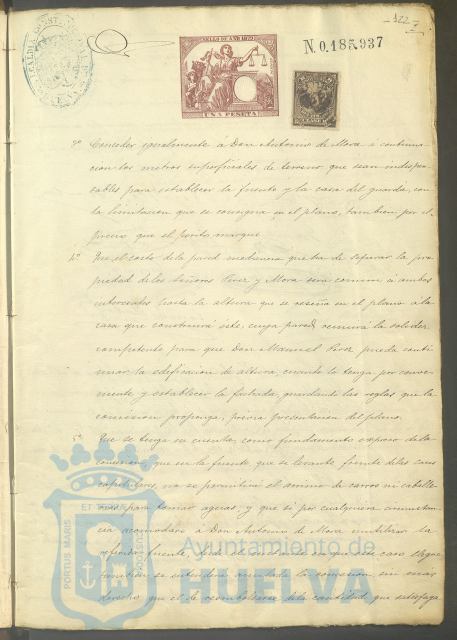 122
SELLO DE AÑO 1872
UNA PESETA
N.0.185,937
3º Conceder igualmente á Don Antonio de Mora á continua
cion los metros superficiales de terreno que sean indispen
sables para establecer la fuente y la casa del guarda, con
la limitacion que se consigna en el plano, tambien por el
precio que el perito marque.
4º Que el costo de la pared medianera que ha de separar la pro
piedad de los Señores Perez y Mora sera comun á ambos
interesados hasta la altura que se reseña en el plano á la
casa que construirá éste, cuya pared reunira la solidez
competente para que Don Manuel Perez pueda conti
nuar la edificacion de altura, cuando lo tenga por conve
niente, y establecer la fachada, guardando las reglas que la
comision proponga, previa presentacion del plano.
5º Que se tenga en cuenta, como fundamento expreso de la
concesion que en la fuente que se levante frente de las casas
capitulares, no se permitirá el servicio de carros ni caballe
rias para tomar aguas, y que si por cualquiera circunstan
cia acomodare á Don Antonio de Mora inutilizar la
referida fuente, en cuyo caso
tambien se entenderá anulada la concesion, sin mas
derecho que el de reembolsarse de la cantidad que satisfaga
PORTUS MARIS
ET TERRÆ
CUSTODIA
Ayuntamiento de
HUELVA